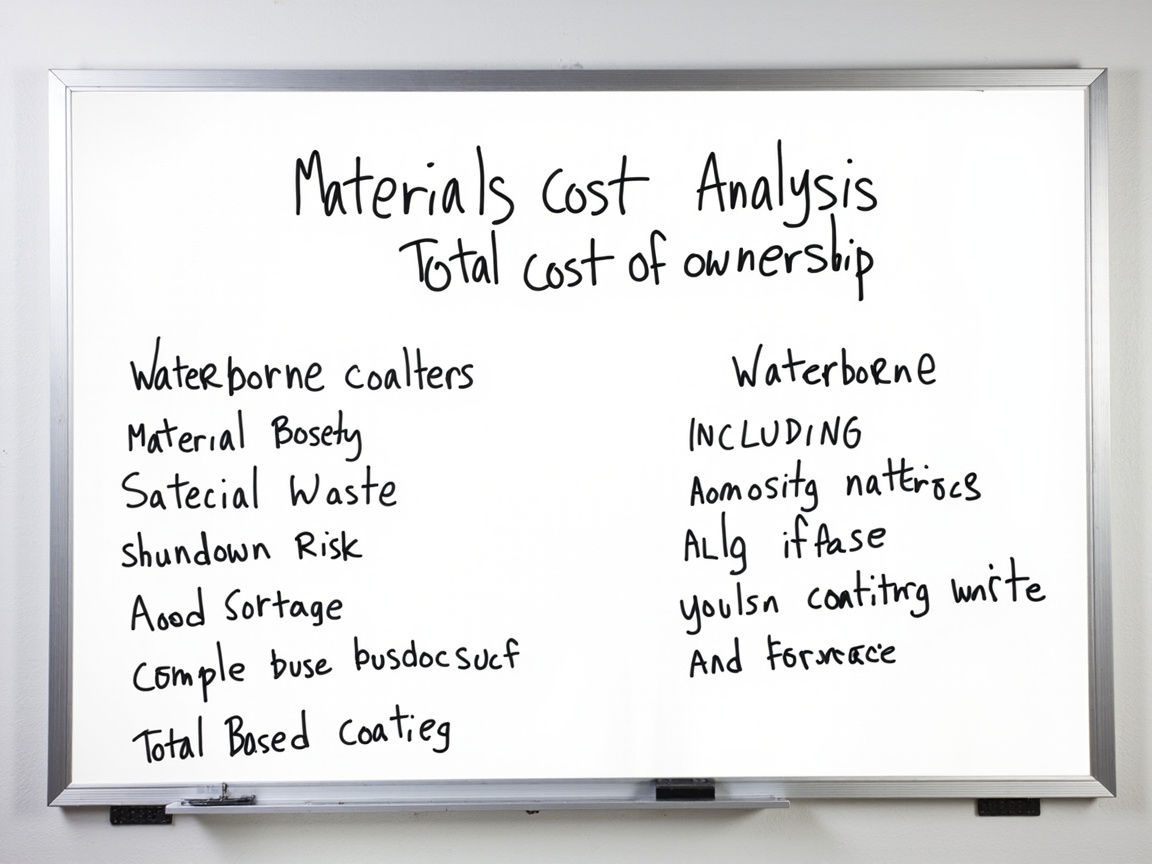 Materials Cost Analysis
Total cost of ownership
Waterborne coalters
Material Bosety
Satecial Waste
Shundown Risk
Aood Sortage
Comple buse busdocsucf
Total Based Coatieg
Waterborne
INCLUDING
Aomositg nattriocs
ALlg if fase
youlsn coatitng wnite
And